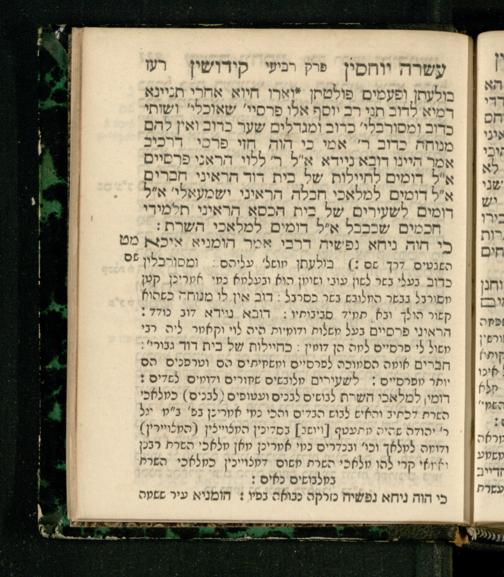 עשרה יוחסין פרק רביעי קידושין רעו
בולעתן ופעמים פולטתן וארו חיוא אחרי תניינא
דמיא לדוב תני רב יוסף אלו פרסיי' שאוכלי' ושותי
כדוב ומסורבלי' כדוב ומגדלים שער כדוב ואין להם
מנוחה כדוב ר' אמי כי הוה חזי פרסי דרכיב
אמר היינו דובא ניידא א"ל ר' ללוי הראני פרסיים
א"ל דומים לחיילות של בית דוד הראיני חברים
א"ל דומים למלאכי חבלה הראיני ישמעאלי' א"ל
דומים לשעירים של בית הכסא הראיני תלמידי
חכמים שבבבל א"ל דומים למלאכי השרת :
כי הוה ניחא נפשיה דרבי אמר הומניא איכא מט
שם
השבטים דרך שם : ) בולעתן מושל עליהם : ומסורבלין
כדוב בעלי בשר לשון עובי ושומן הוא ובעלמא נמי אמרינן קטן
מסורבל בבשר המלובש בשר כסרבל : דוב אין לו מנוחה כשהוא
קשור הולך ובא תמיד סביבותיו : דובא ניידא דוב נודד :
הראיני פרסיים בעל משלות ודומיות היה לוי וקאמר ליה רבי
משול לי פרסיים למה הן דומין : כחיילות של בית דוד גבורי' :
חברים אומה הסמוכה לפרסיים ומשחיתים הם וטרפנים הם
יותר מפרסיים : לשעירים מלובשים שחורים ודומים לשדים :
דומין למלאכי השרת לבושים לבנים ועטופים (לבנים) כמלאכי
השרת דכתיב והאיש לבוש הבדים והכי נמי אמרינן בפ' ב"מ יגל
ר' יהודה שהיה מתעטף [ויושב] בסדינין המצוייצין (המצוייירין)
ודומה למלאך וכו' ובנדרים נמי אמרינן מאן מלאכי השרת רבנן
ואמאי קרי להו מלאכי השרת משום דמצוייצין כמלאכי השרת
במלבושים נאים :
כי הוה ניחא נפשיה בנבואה כפיו : הומניא עיר ששמה